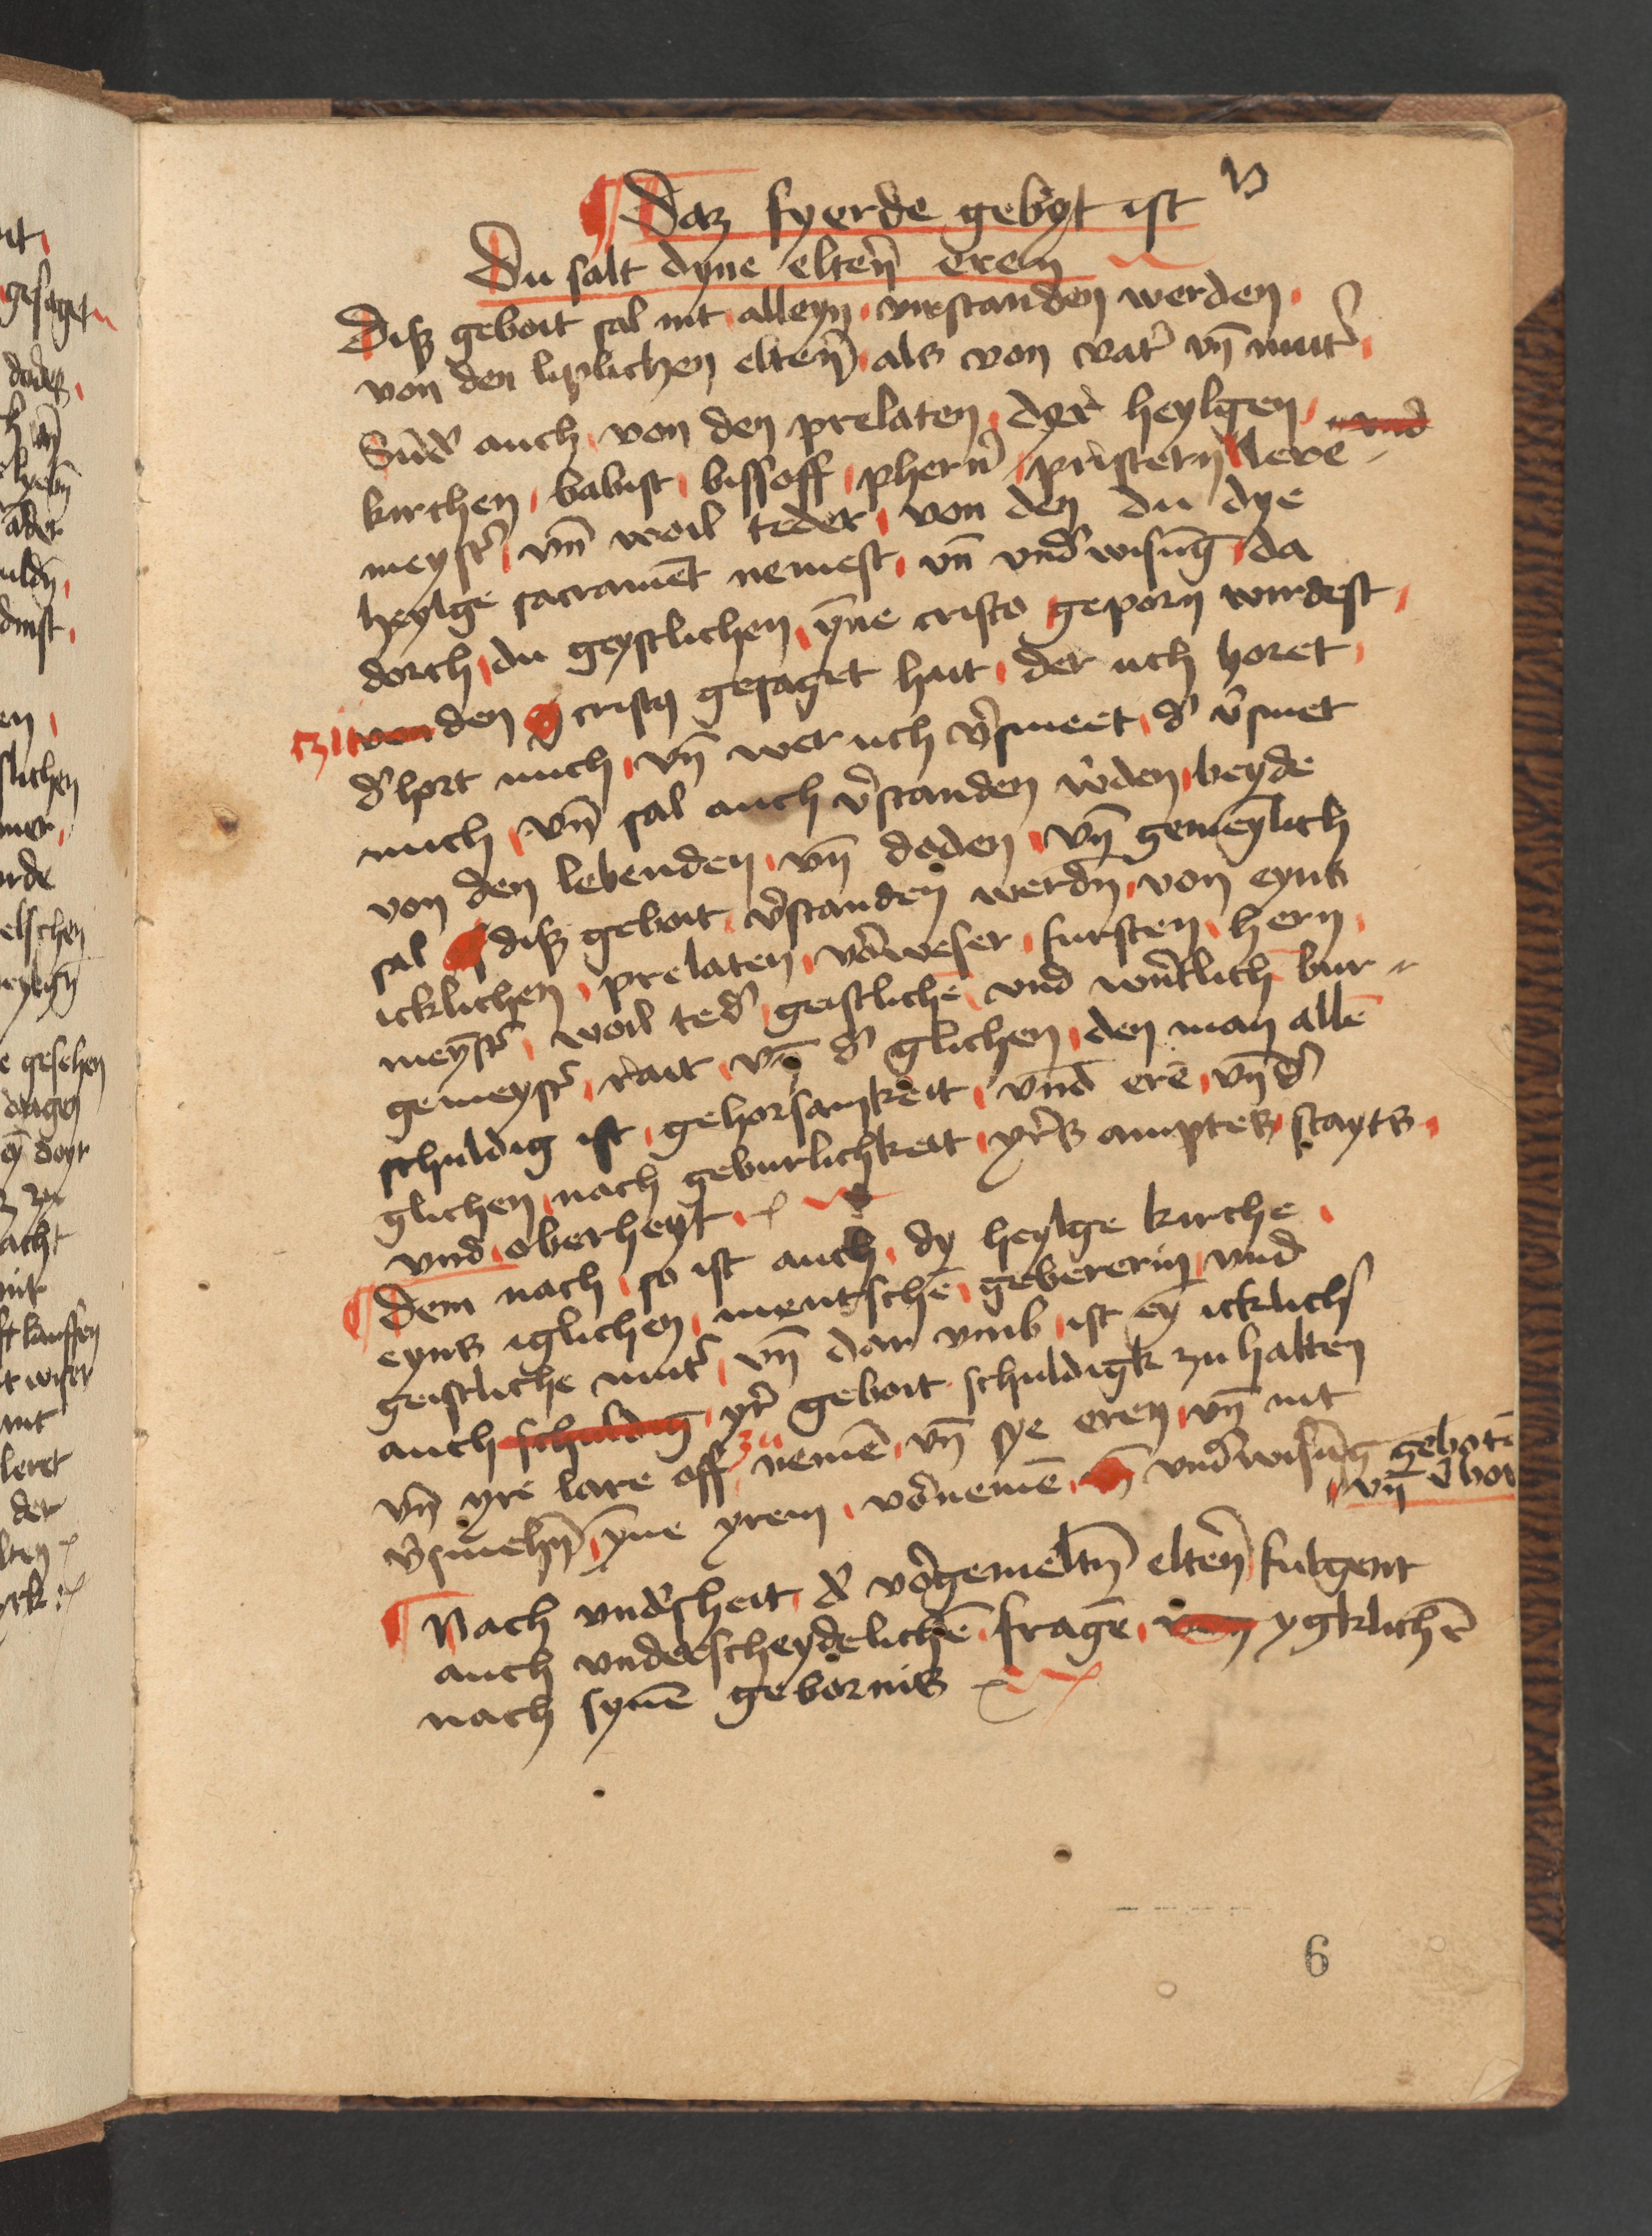 Daz fyerde gebot ist
Du salt dyne elteñ eren
Diß geboit sal nit alleyn vorstanden werden
von den liplichen elteñ als von vat' vn̄ mut'
Sūd' auch von den prelaten dyr heylgen
kirchen babist bissoff phern̄ pristern lere
meyst' vn̄ woil teder von den du dye
heylge sacramēt nemest vn̄ vnd'wisūg da
dorch du geystlichen yne cristo geporn wirdest
zu den cristus gesaget hait der uch horet
d' hort mich vn̄ wer uch v'smeet d' v'smet
mich vn̄ sal auch v'standen w'den beyde
von den lebenden vn̄ doden vn̄ gemeylich
sal diß geboit v'standen werdn̄ von eyns
icklichen prelaten vorweser fursten hern
meyst' woil ted' geistlichē vnd werltlich bur
gemeyst' rait vn̄ d' glichen den man allē
schuldig ist gehorsamkeit vnd erē vn̄ d'
glichen nach geburlichkeit yrs amptes stayts
vnd oberheyt
Dem nach so ist auch dy heylge kirche
eyns iglichen mentschē gebererin vnd
geistliche mut' vn̄ dar vmb ist ey icklich'
auch schuldig yr geboit schuldigk zu halten
vn̄ yre lare off zu nemē vn̄ sye eren vn̄ nit
v'smehn̄ yne yrem vornemē vnd'wisūg gebotē
vn̄
Nach vnd'sheit d' vorgemeltn̄ elteñ fulgent
auch vnderscheydelichē fragē ygklichē
nach synē gebornis
6